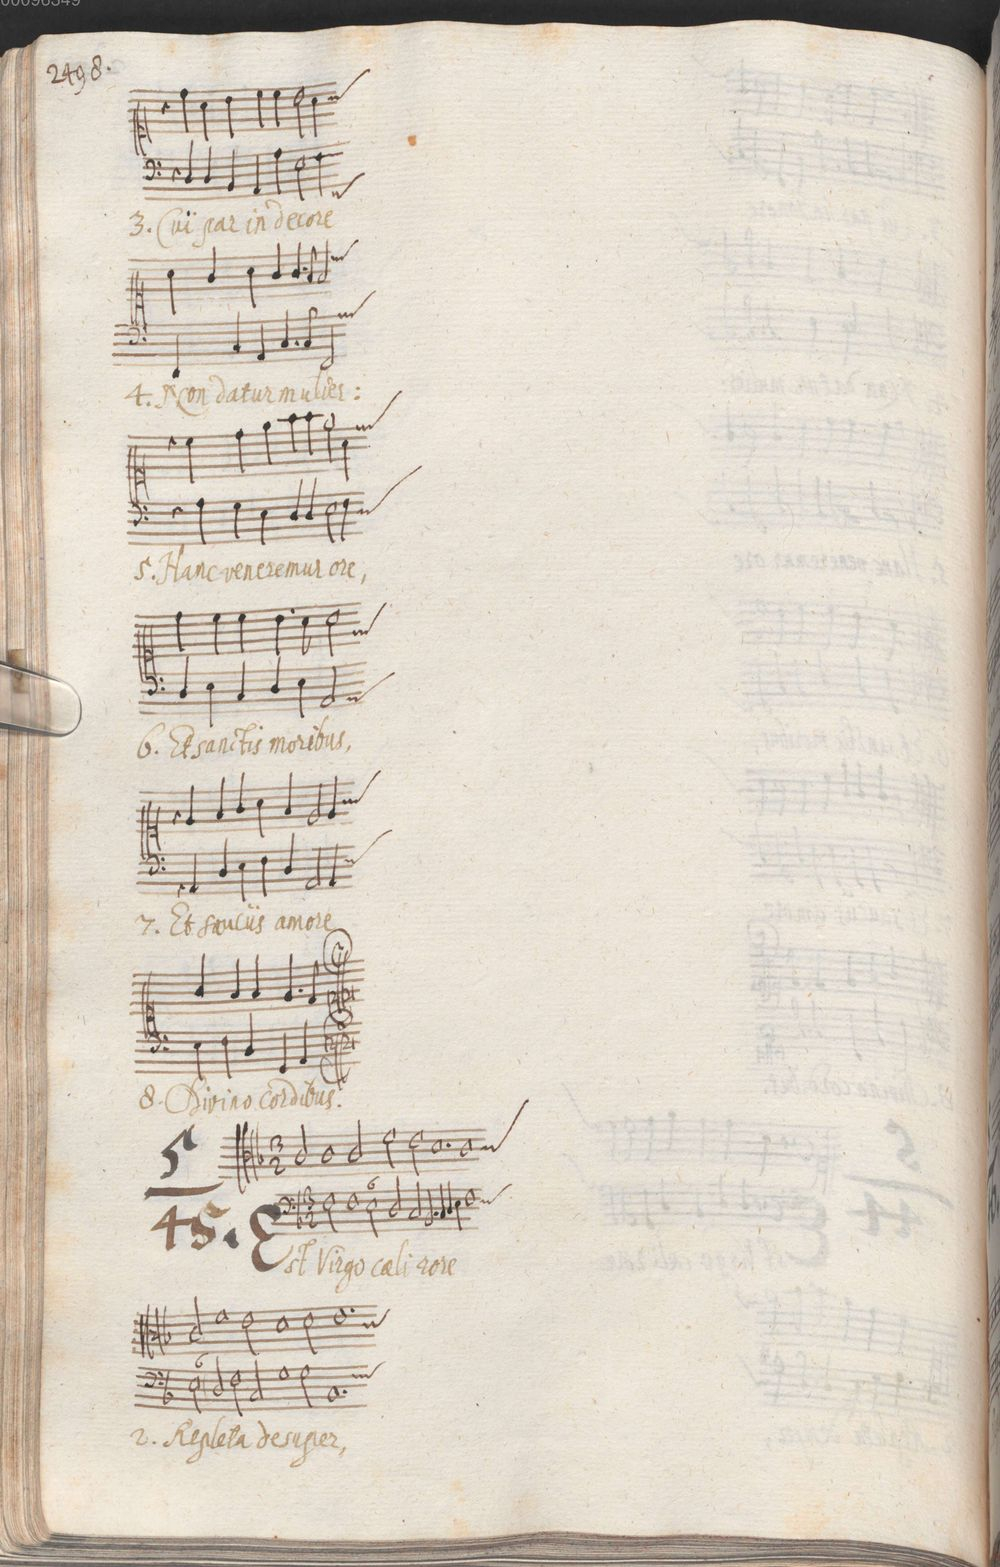 00096349
2498.
3. Cui par in decore
4. Non datur mulier:
5. Hanc veneremur ore,
6. Et sanctis moribus,
7. Et sauciis amore
8. Divino cordibus.
5
45. Est Virgo cæli rore
2. Repleta desuper,